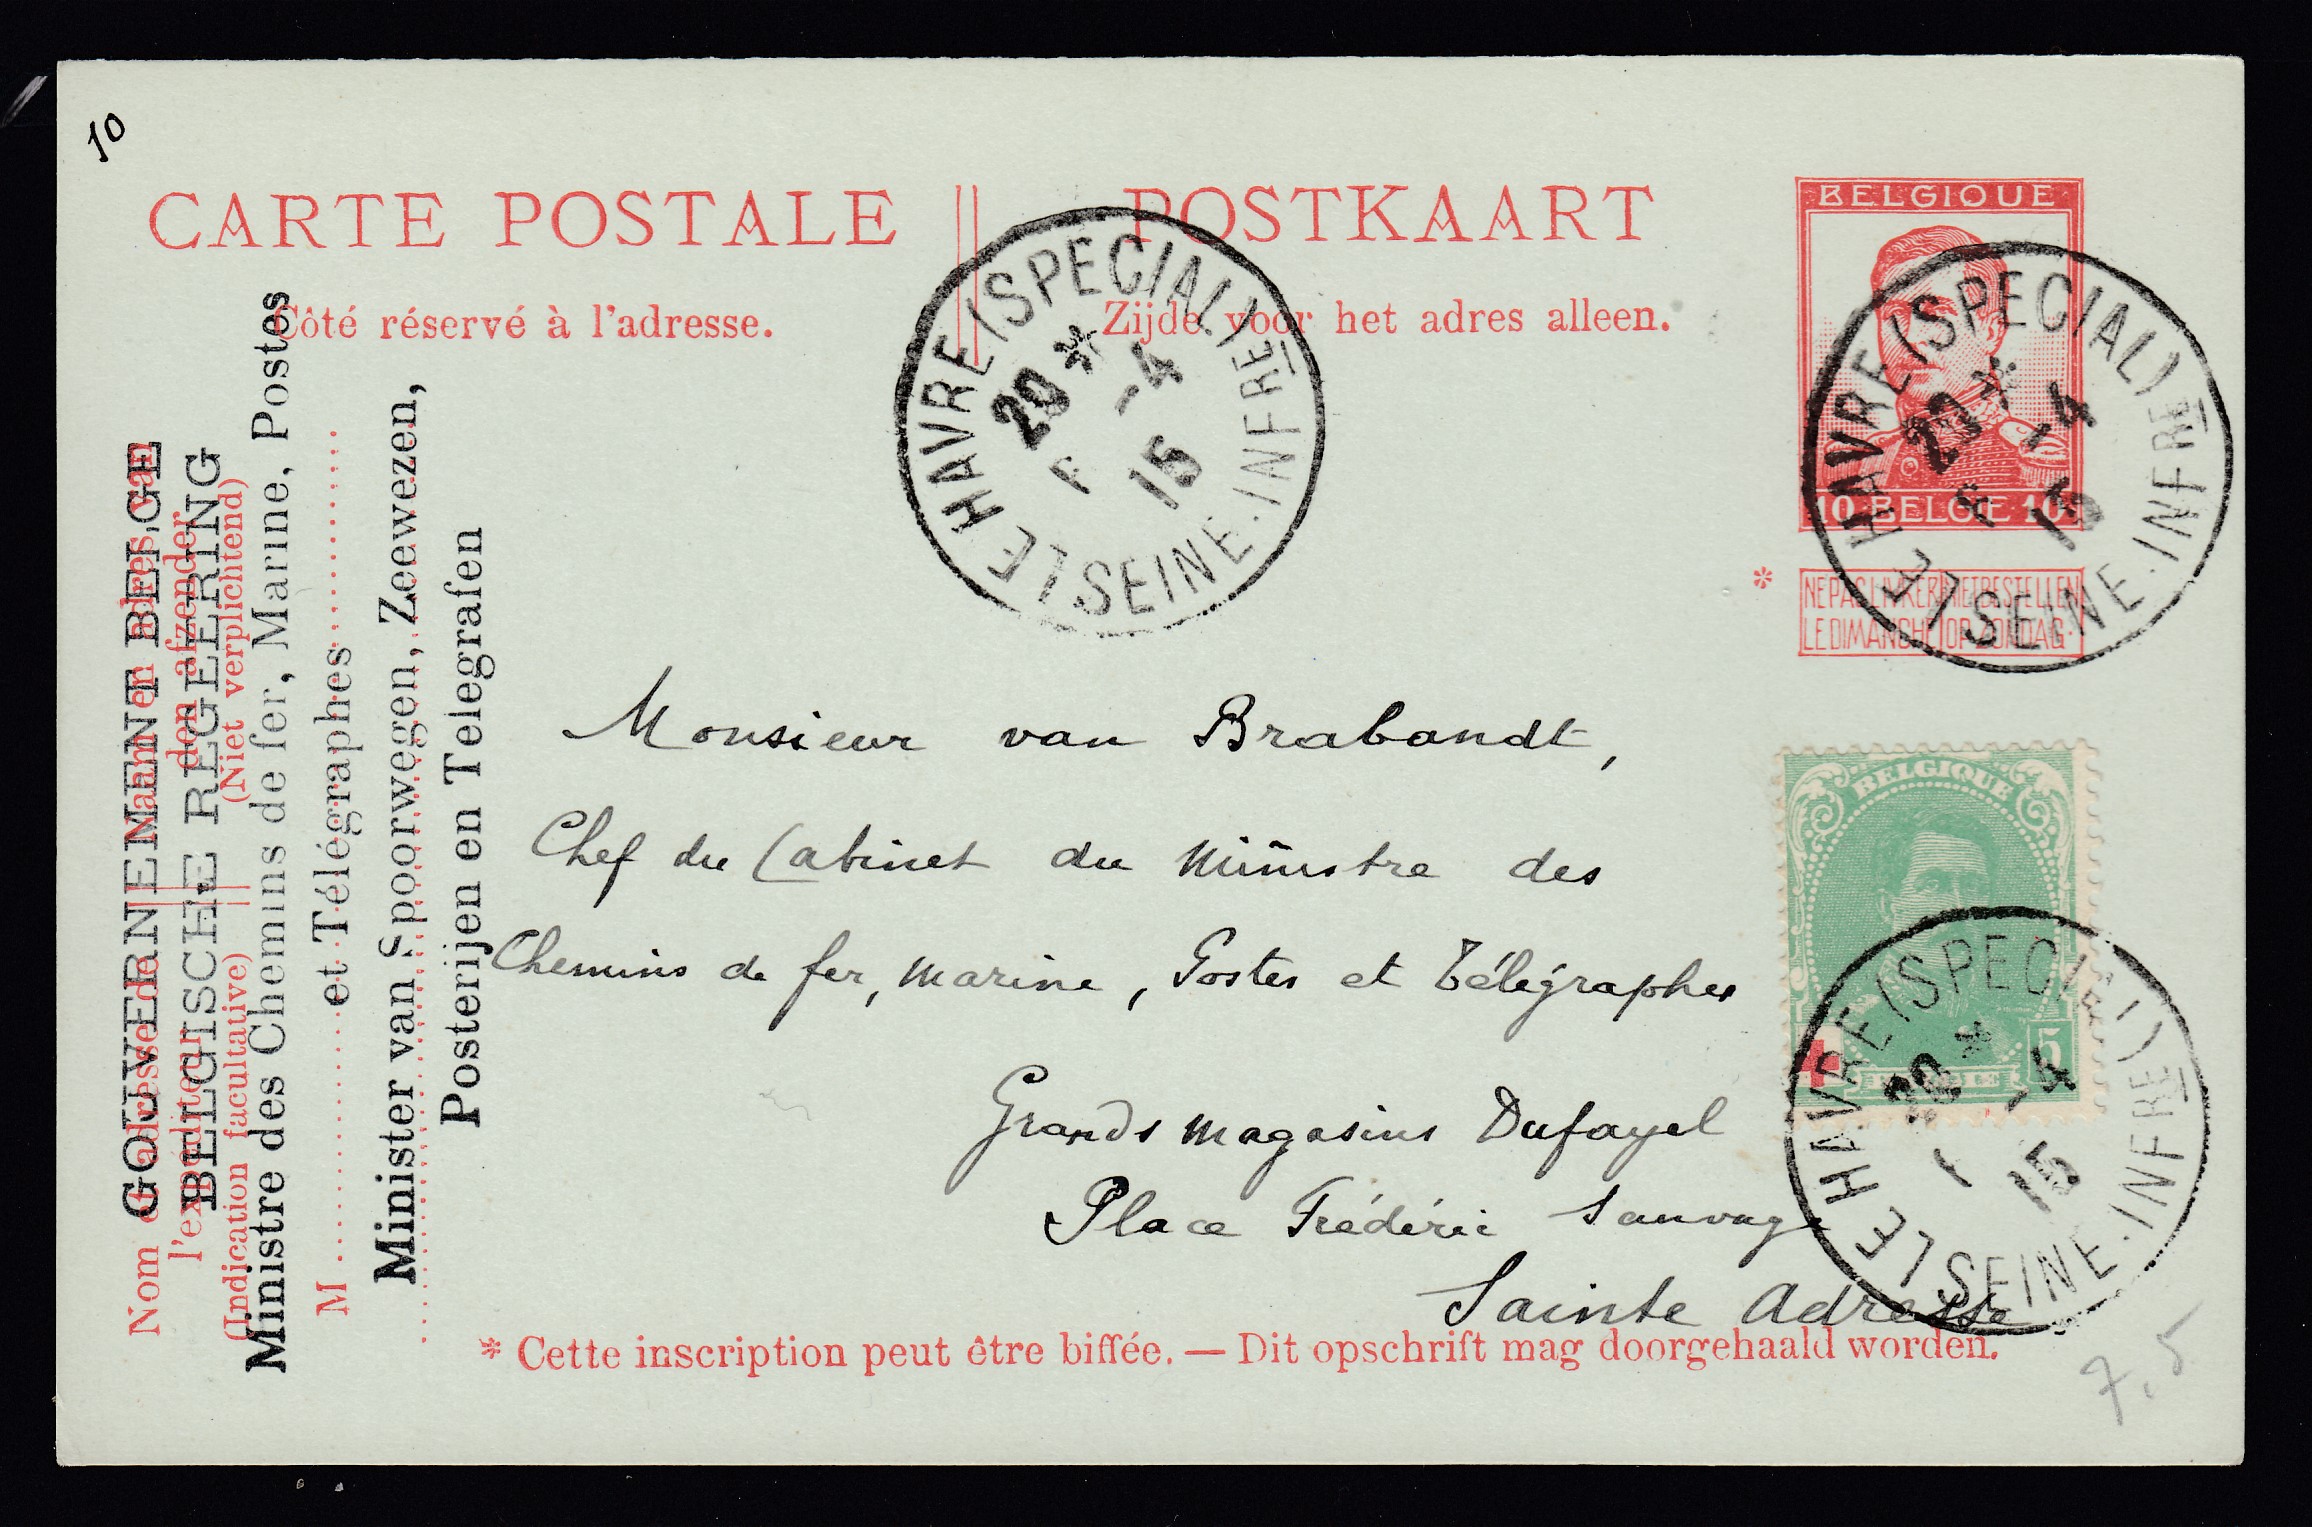 10
CARTE POSTALE
POSTKAART
Côté réservé à l'adresse.
Zijde voor het adres alleen.
BELGIQUE
10 BELGIE 10
* NE PAS LIVRER LE DIMANCHE
NIET BESTELLEN OP ZONDAG
LE HAVRE (SPECIAL)
SEINE-INFRE
20 * -4 15
LE HAVRE (SPECIAL)
SEINE-INFRE
20 * -4 15
GOUVERNEMENT BELGE
BELGISCHE REGEERING
Ministre des Chemins de fer, Marine, Postes
et Télégraphes
Minister van Spoorwegen, Zeewezen,
Posterijen en Telegrafen
Nom et adresse de
l'expéditeur
(Indication facultative)
Naam en adres van
den afzender
(Niet verplichtend)
M
Monsieur van Brabandt,
Chef du Cabinet du Ministre des
Chemins de fer, Marine, Postes et Télégraphes
Grands Magasins Dufayel
Place Frédéric Sauvage
Sainte Adresse
BELGIQUE
5
LE HAVRE (SPECIAL)
SEINE-INFRE
20 * -4 15
* Cette inscription peut être biffée. — Dit opschrift mag doorgehaald worden.
7,5